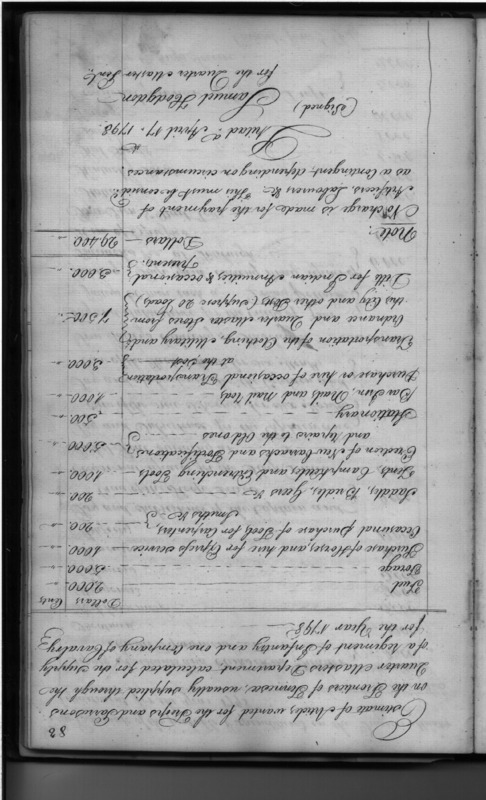 82
Estimate of Articles wanted for the Troops and Garrisons
on the Frontiers of Tennessee, usually supplied through the
Quarter Masters Department calculated for the supply
of a Regement of Infantry and one Company of Cavalry
for the Year 1798.
Dollars Cents
Fuel 2,000
Forage 3,000
Purchase of Horses, and hire for Express service 1,000
Occasional purchase of Tools for Carpenters,
Smiths &c 200
Seeds, Gears &c 200
Tents, Campkettles, and Entrenching Tools 1,000
Erection of New barracks and Fortifications
and repairs to the Old ones 5,000
Stationary 500
Bar Iron, Nails and Nail rods 1,000
Purchase or hire of occasional Transportation
at the Post 3,000
Transportation of the Clothing, Military and
Ordnance and Quarter Master Stores from
this City and other Posts (suppose 20 loads) 7,500
Ditto for Indian Annuities & occasional
Presents 3,000
Dollars 29,400
Note:
No charge is made for the payment of
Artificers Labourers &c This must be consid.d
as a Contingent, depending on circumstances.
Philad.a April 17. 1798.
(Signed) Samuel Hodgdon
for the Quarter Master Genl.